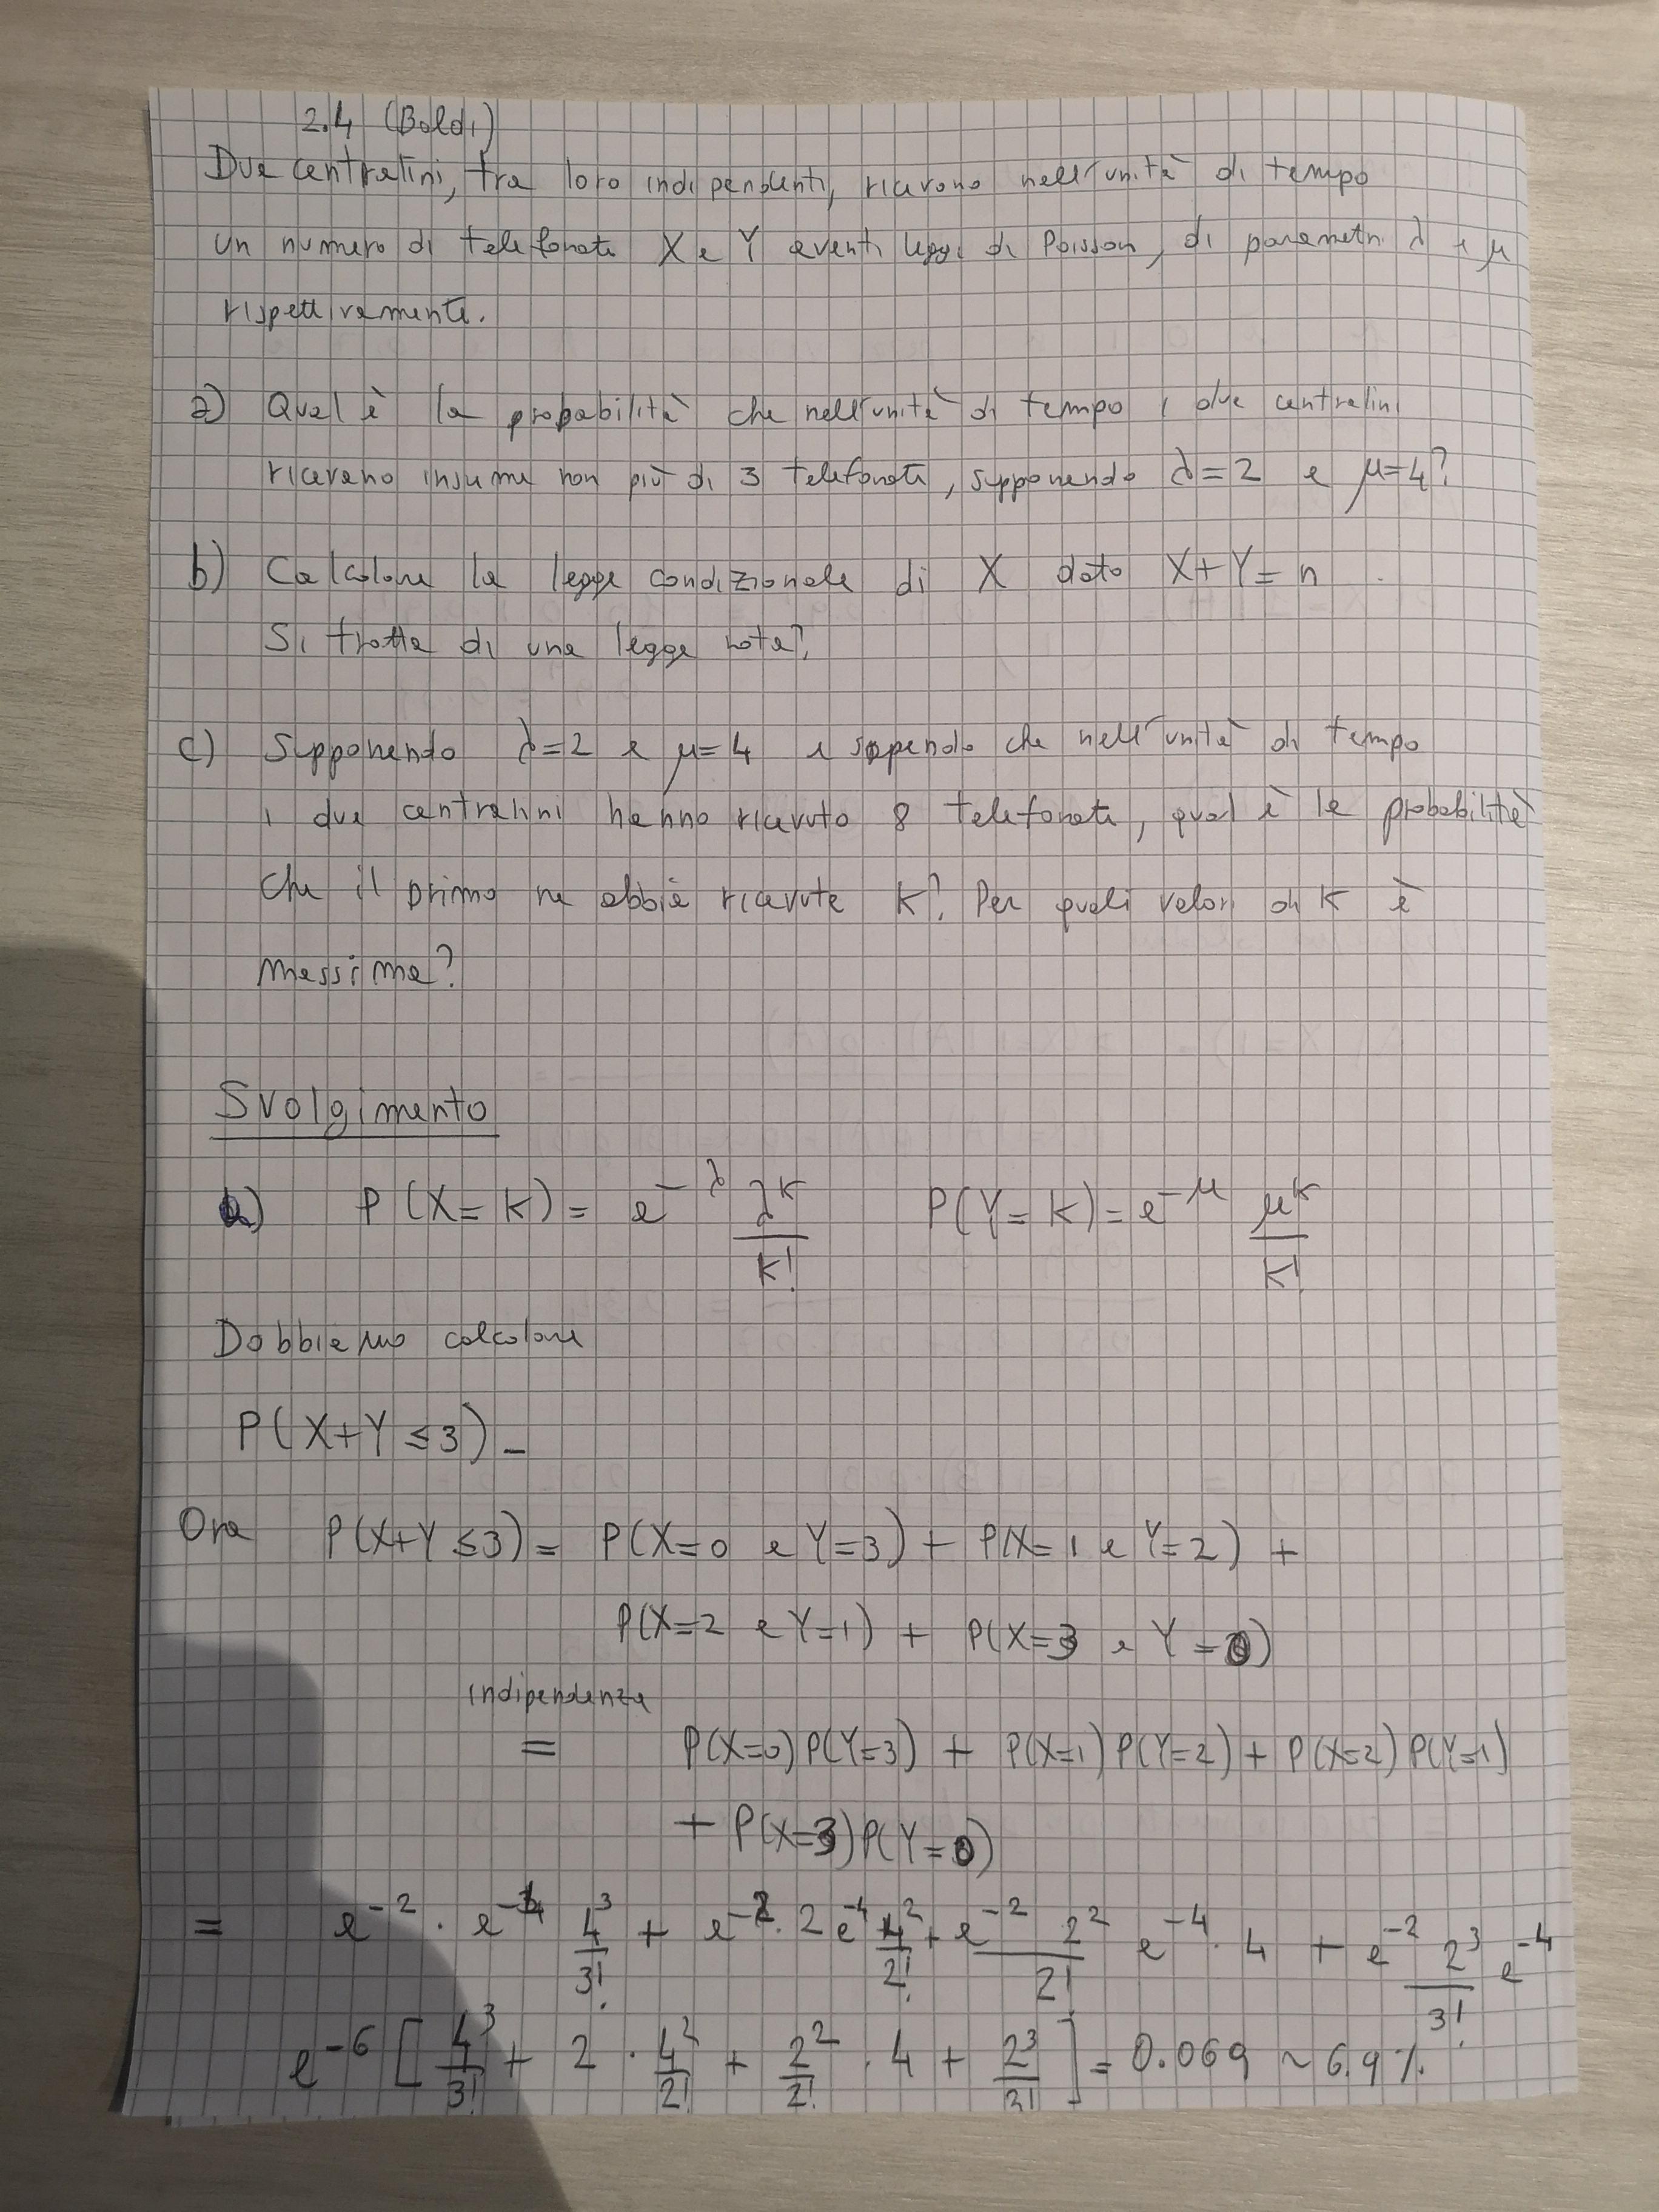 2.4 (Baldi)
Due centralini, tra loro indipendenti, ricevono nell'unità di tempo
un numero di telefonate X e Y aventi leggi di Poisson, di parametri λ e μ
rispettivamente.
a) Qual è la probabilità che nell'unità di tempo i due centralini
ricevano insieme non più di 3 telefonate, supponendo λ=2 e μ=4?
b) Calcolare la legge condizionale di X dato X+Y=n
Si tratta di una legge nota?
c) Supponendo λ=2 e μ=4 e sapendo che nell'unità di tempo
i due centralini hanno ricevuto 8 telefonate, qual è la probabilità
che il primo ne abbia ricevute k? Per quali valori di k è
massima?
Svolgimento
a) P(X=k) = e^{-λ} λ^k/k! P(Y=k) = e^{-μ} μ^k/k!
Dobbiamo calcolare
P(X+Y≤3)
Ora P(X+Y≤3) = P(X=0 e Y=3) + P(X=1 e Y=2) +
P(X=2 e Y=1) + P(X=3 e Y=0)
indipendenza
= P(X=0)P(Y=3) + P(X=1)P(Y=2) + P(X=2)P(Y=1)
+ P(X=3)P(Y=0)
= e^{-2} · e^{-4} 4^3/3! + e^{-2} · 2 e^{-4} 4^2/2! + e^{-2} 2^2/2! e^{-4} · 4 + e^{-2} 2^3/3! e^{-4}
e^{-6} [4^3/3! + 2 · 4^2/2! + 2^2/2! · 4 + 2^3/3!] = 0.069 ~ 6.9%